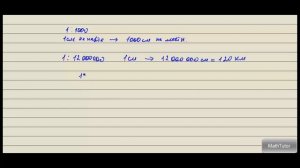 1 : 1000
1см на карте → 1000см на местн.
1 : 12000000 1см → 12000000 см = 120 км
1°
MathTutor